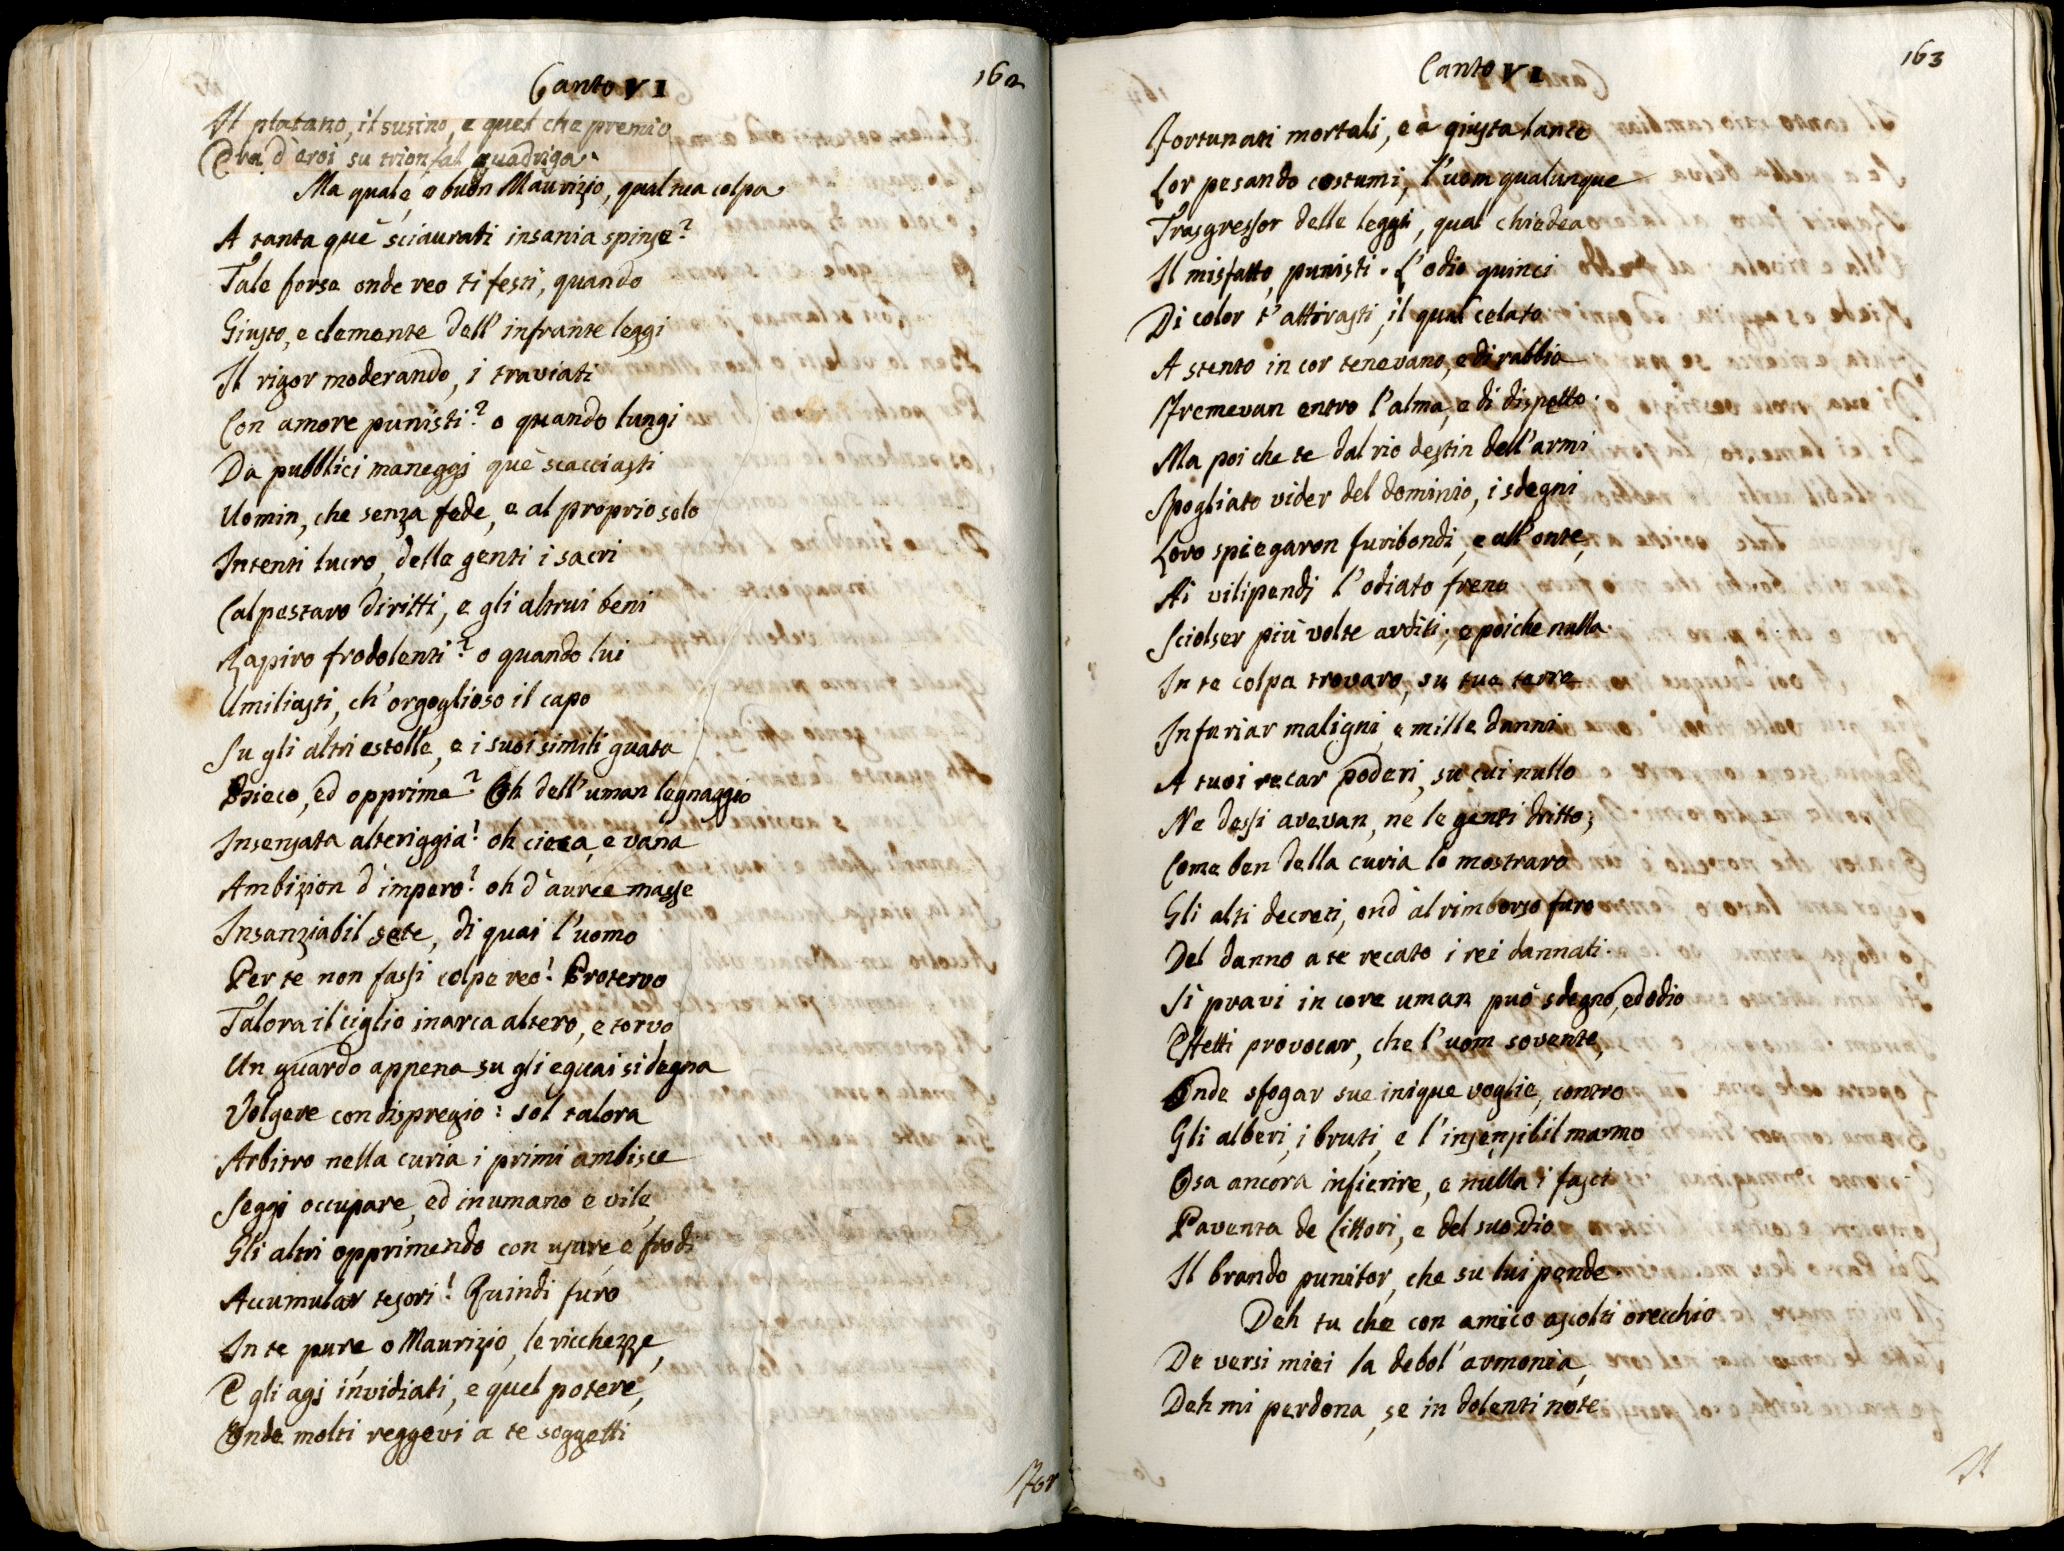 Canto VI
162
Il platano, il susino, e quel che premio
Era d'eroi su trionfal quadriga.
Ma quale, o buon Maurizio, qual tua colpa
A tanta què sciaurati insania spinse?
Tale forse onde reo ti festi, quando
Giusto, e clemente dell'infrante leggi
Il rigor moderando, i traviati
Con amore punisti? o quando lungi
Da pubblici maneggj què scacciasti
Uomin, che senza fede, e al proprio solo
Intenti lucro, delle genti i sacri
Calpestaro diritti, e gli altrui beni
Rapiro frodolenti? o quando lui
Umiliasti, ch'orgoglioso il capo
Su gli altri estolle, e i suoi simili guata
Bieco, ed opprime? Oh dell'uman legnaggio
Insensata alteriggia! oh cieca, e vana
Ambizion d'impero! oh d'auree masse
Insanziabil sete, di quai l'uomo
Per te non fassi colpe reo! Protervo
Talora il ciglio inarca altero, e torvo
Un guardo appena su gli eguai si degna
Volgere con dispregio: sol talora
Arbitro nella curia i primi ambisce
Seggi occupare, ed inumano e vile,
Gli altri opprimendo con usure e frodi
Accumular tesori! Quindi furo
In te pure o Maurizio, le ricchezze,
E gli agj invidiati, e quel potere,
Onde molti reggevi a te soggetti
For
Canto VI
163
Fortunati mortali, e a giusta lance
Lor pesando costumi, l'uom qualunque
Trasgressor delle leggi, qual chiedea
Il misfatto, punisti. L'odio quinci
Di color t'attirasti, il qual celato
A stento in cor tenevano, e di rabbia
Fremevan entro l'alma, e di dispetto.
Ma poi che te dal rio destin dell'armi
Spogliato vider del dominio, i sdegni
Loro spiegaron furibondi, e all'onte,
Ai vilipendj l'odiato freno
Sciolser più volte arditi; e poiche nulla
In te colpa trovaro, su tue terre
Infuriar maligni, e mille danni
A tuoi recar poderi, su cui nullo
Ne dessi avevan, ne le genti dritto;
Come ben della curia lo mostraro
Gli alti decreti, ond'al rimborso furo
Del danno a te recato i rei dannati.
Sì pravi in core uman può sdegno, ed odio
Effetti provocar, che l'uom sovente,
Onde sfogar sue inique voglie, contro
Gli alberi, i bruti, e l'insensibil marmo
Osa ancora infierire, e nulla i fasci
Paventa de Littori, e del suo Dio
Il brando punitor, che su lui pende.
Deh tu che con amico ascolti orecchio
De versi miei la debol'armonia,
Deh mi perdona, se in dolenti note
Il